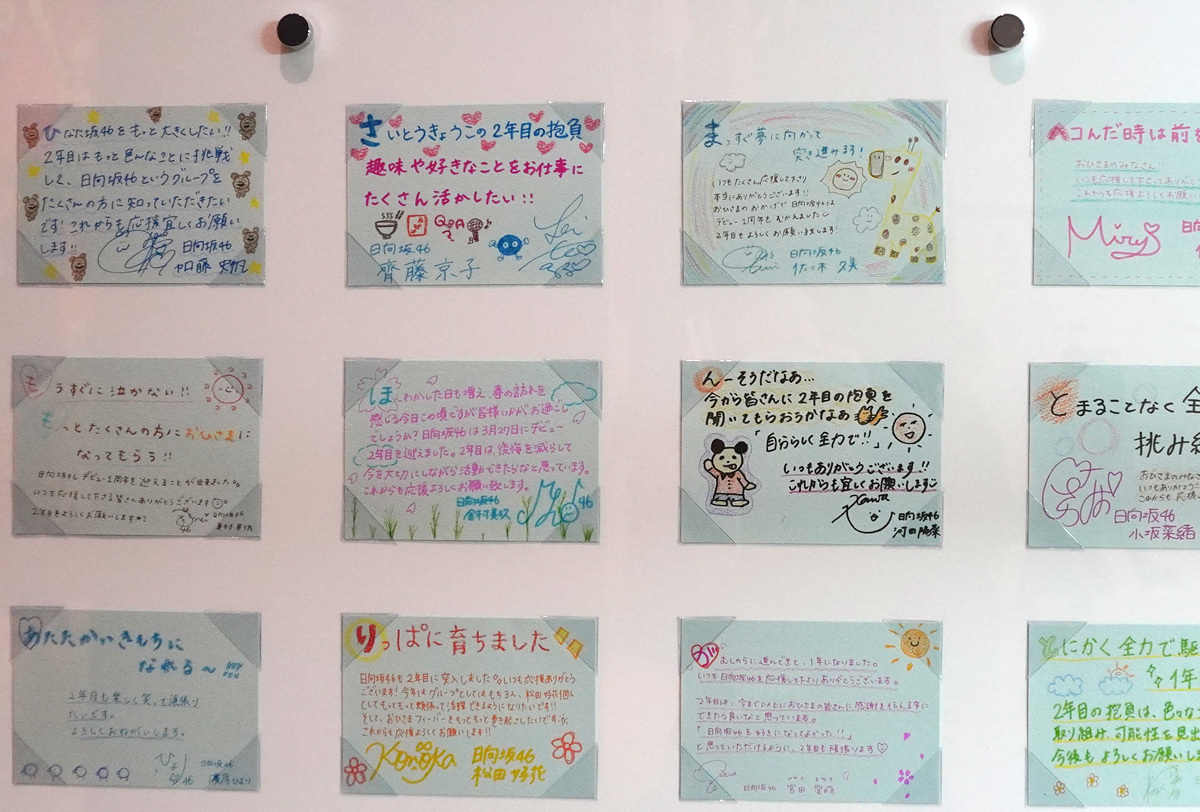 ひなた坂46をもっと大きくしたい!!
2年目はもっと色んなことに挑戦
して、日向坂46というグループを
たくさんの方に知っていただきたい
です!これからも応援宜しくお願い
します!!
日向坂46
加藤史帆
さいとうきょうこの2年目の抱負
趣味や好きなことをお仕事に
たくさん活かしたい!!
Q&A
日向坂46
齊藤京子
まっすぐ夢に向かって
突き進みます!
いつもたくさん応援して下さり
本当にありがとうございます!!
おひさまのおかげで日向坂46は
デビュー1周年をむかえました
2年目もよろしくお願います!
日向坂46
佐々木久美
コんだ時は前を
おひさまのみなさん!
いつも応援して下さってありがと
これからも応援よろしくお願い
Mirei
もうすぐに泣かない!!
もっとたくさんの方におひさまに
なってもらう!!
日向坂46デビュー1周年を迎えることが出来ました。
いつも応援して下さる皆さんありがとうございます
2年目もよろしくお願いします
日向坂46
ほんわかした日も増え、春の訪れを
感じる今日この頃ですが皆様いかがお過ごし
でしょうか?日向坂46は3月27日にデビュー
2年目を迎えました。2年目は、後悔を減らして
今を大切にしながら活動できたらなと思っています。
これからも応援よろしくお願い致します。
日向坂46
金村美玖
んーそうだなあ…
今から皆さんに2年目の抱負を
聞いてもらおうかなあ
「自分らしく全力で!!」
いつもありがとうございます!!
これからも宜しくお願いします
Kawa
日向坂46
河田陽菜
とまることなく全
挑み続
おひさまのみなさん
いつもありがとう
これからも応援
日向坂46
小坂菜緒
あたたかいきもちに
なれる〜
2年目も楽しく笑って頑張り
たいです。
よろしくおねがいします。
日向坂46
濱岸ひより
りっぱに育ちました
日向坂46も2年目に突入しました いつも応援ありがとう
ございます!今年はグループとしてはもちろん、松田好花個人
としてももっともっと頑張って活躍できるようになりたいです!!
そして、おひさまフィーバーをもっともっと巻き起こしたいです
これからも応援よろしくお願いします!!
Konoka
日向坂46
松田好花
がむしゃらに進んできて、1年になりました。
いつも日向坂46を応援して下さりありがとうございます。
2年目は、今まで以上におひさまの皆さんに感謝を伝える年に
できたら良いなと思っています。
「日向坂46を好きになってよかった!!」
と思っていただけるように、2年目も頑張ります
日向坂46
宮田愛萌
とにかく全力で駆
1年
2年目の抱負は、色々な
取り組み、可能性を見出
今後もよろしくお願いし